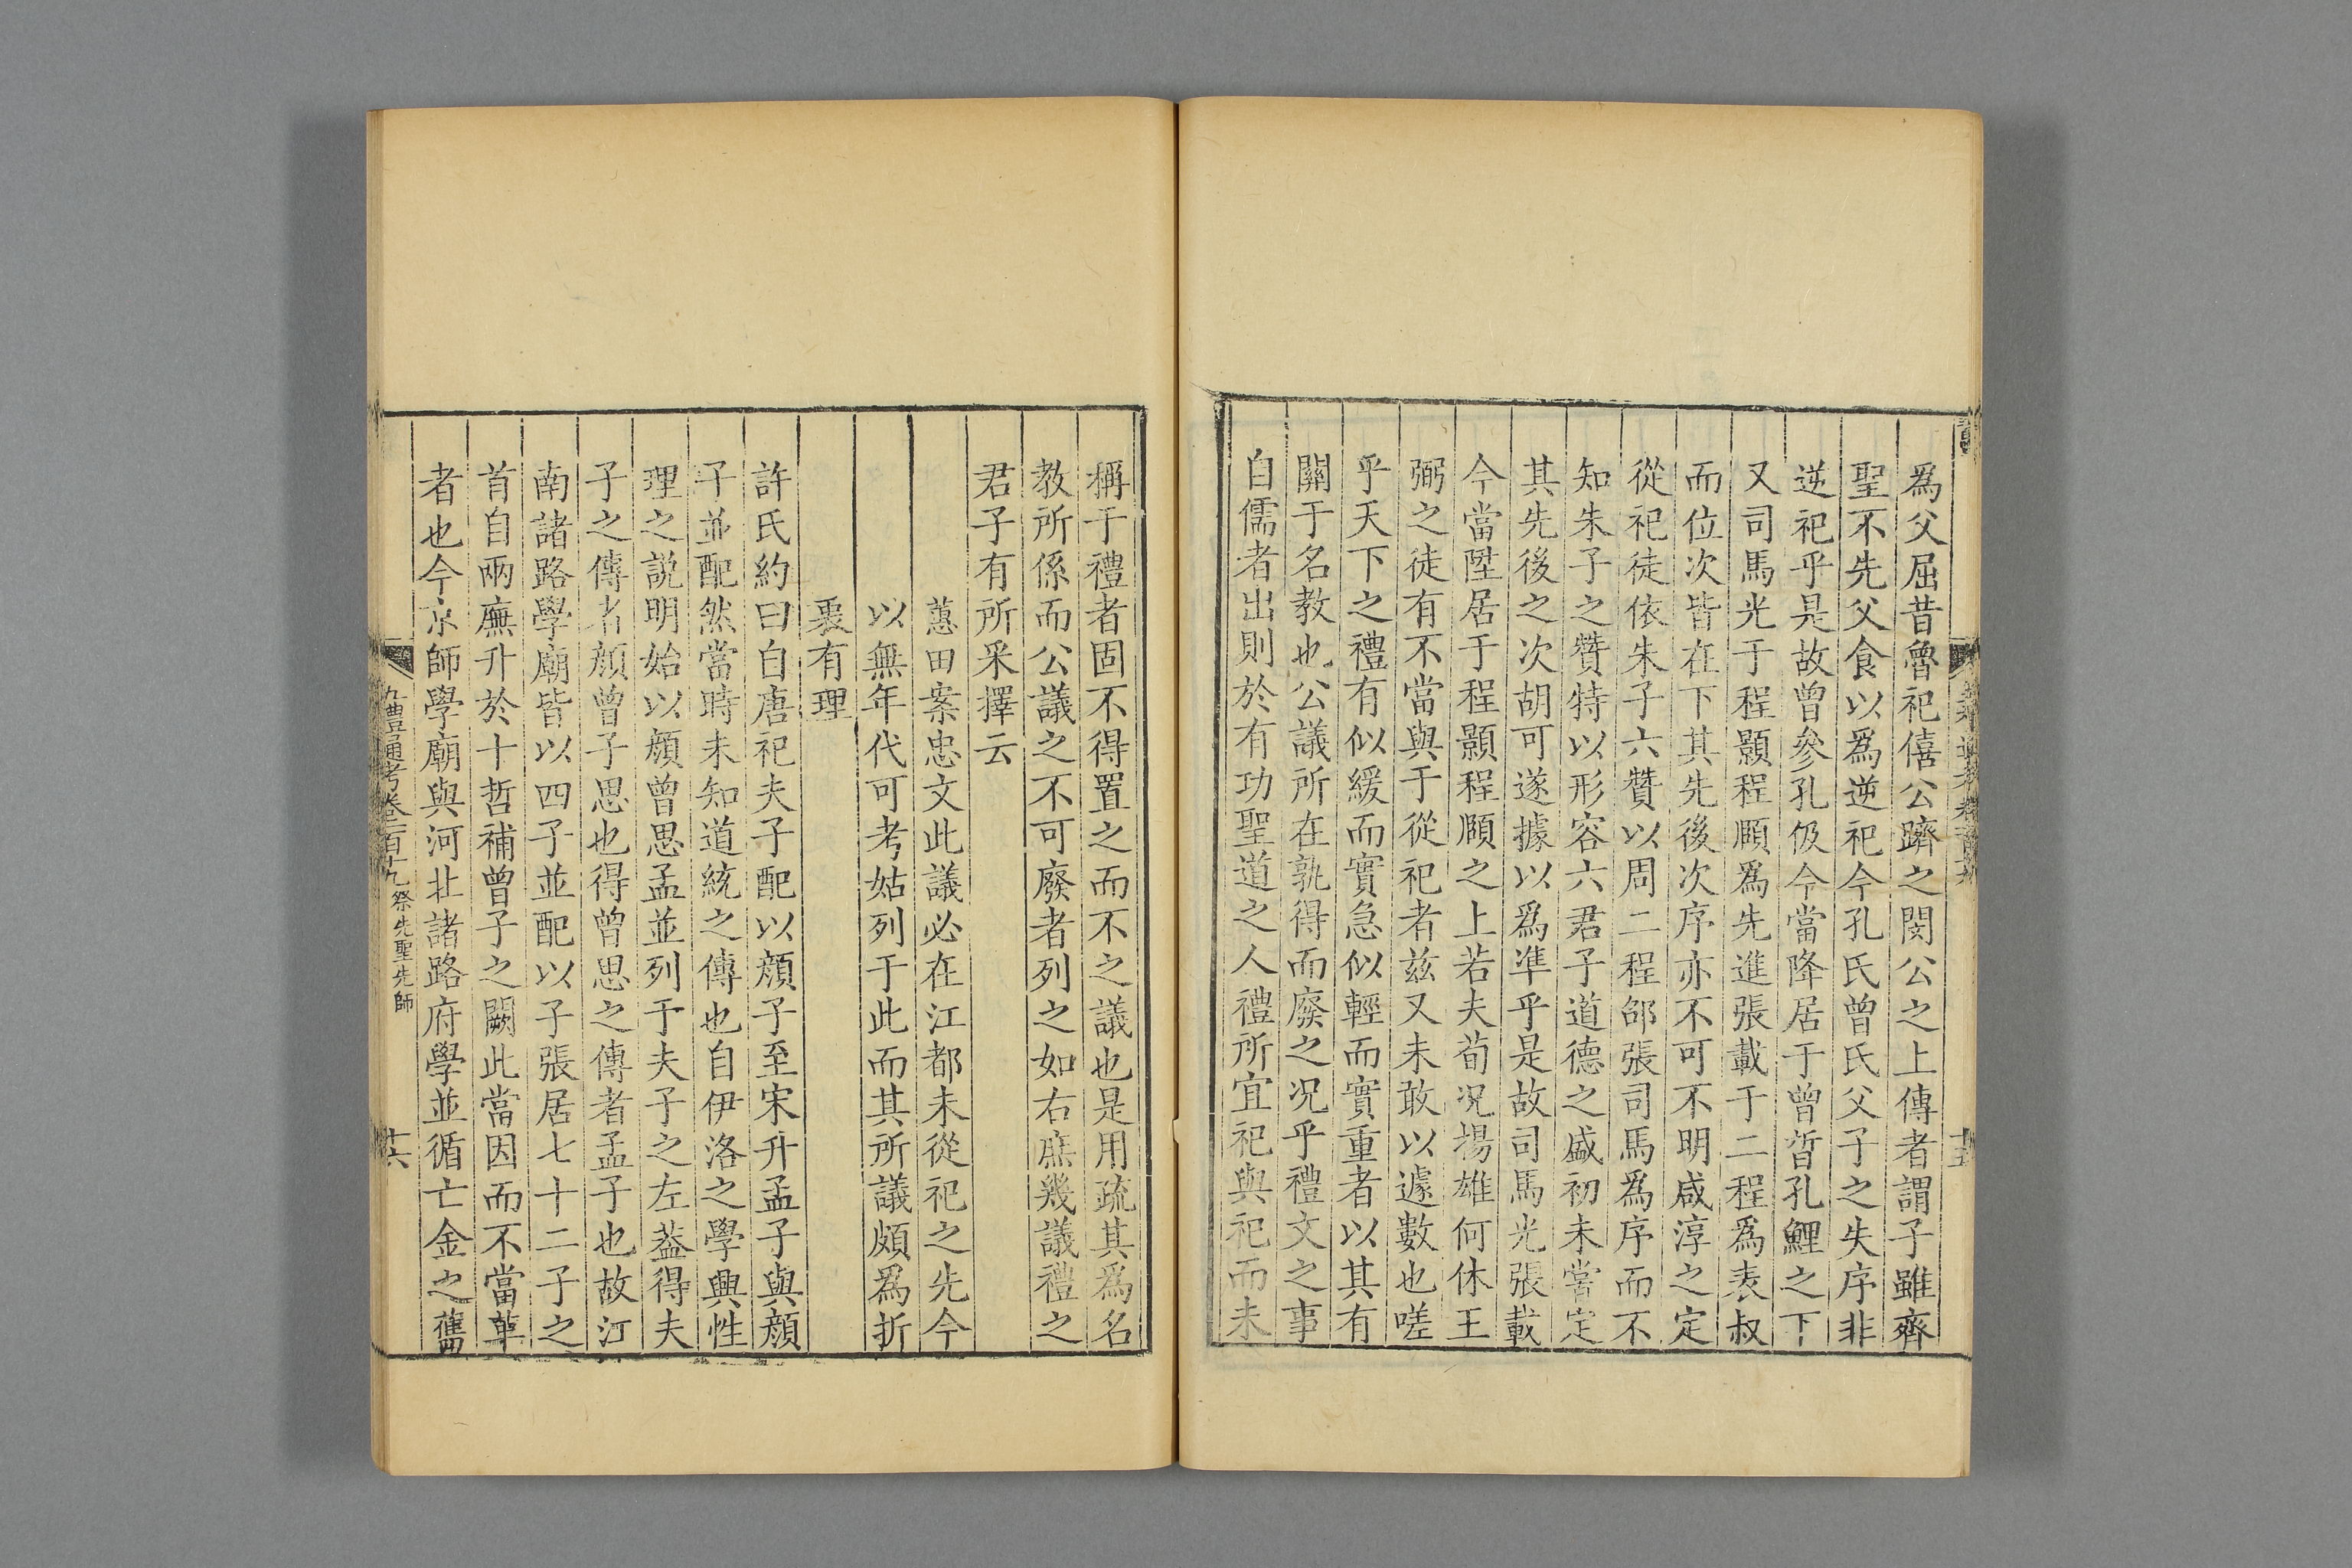 爲父屈昔魯祀僖公躋之閔公之上傳者謂子雖齊
聖不先父食以爲逆祀今孔氏曾氏父子之失序非
逆祀乎是故曾參孔伋今當降居于曾晳孔鯉之下
又司馬光于程顥程頤爲先進張載于二程爲表叔
而位次皆在下其先後次序亦不可不明咸淳之定
從祀徒依朱子六贊以周二程邵張司馬爲序而不
知朱子之贊特以形容六君子道德之盛初未嘗定
其先後之次胡可遂據以爲準乎是故司馬光張載
今當陞居于程顥程頤之上若夫荀况揚雄何休王
弼之徒有不當與于從祀者茲又未敢以遽數也嗟
乎天下之禮有似緩而實急似輕而實重者以其有
關于名教也公議所在孰得而廢之况乎禮文之事
自儒者出則於有功聖道之人禮所宜祀與祀而未
稱于禮者固不得置之而不之議也是用疏其爲名
教所係而公議之不可廢者列之如右庶幾議禮之
君子有所采擇云
蕙田案忠文此議必在江都未從祀之先今
以無年代可考姑列于此而其所議頗爲折
衷有理
許氏約曰自唐祀夫子配以顔子至宋升孟子與顔
子並配然當時未知道統之傳也自伊洛之學興性
理之說明始以顔曾思孟並列于夫子之左蓋得夫
子之傳者顔曾子思也得曾思之傳者孟子也故江
南諸路學廟皆以四子並配以子張居七十二子之
首自兩廡升於十哲補曾子之闕此當因而不當革
者也今京師學廟與河北諸路府學並循亡金之舊
五禮通考卷一百十九 祭先聖先師
十六